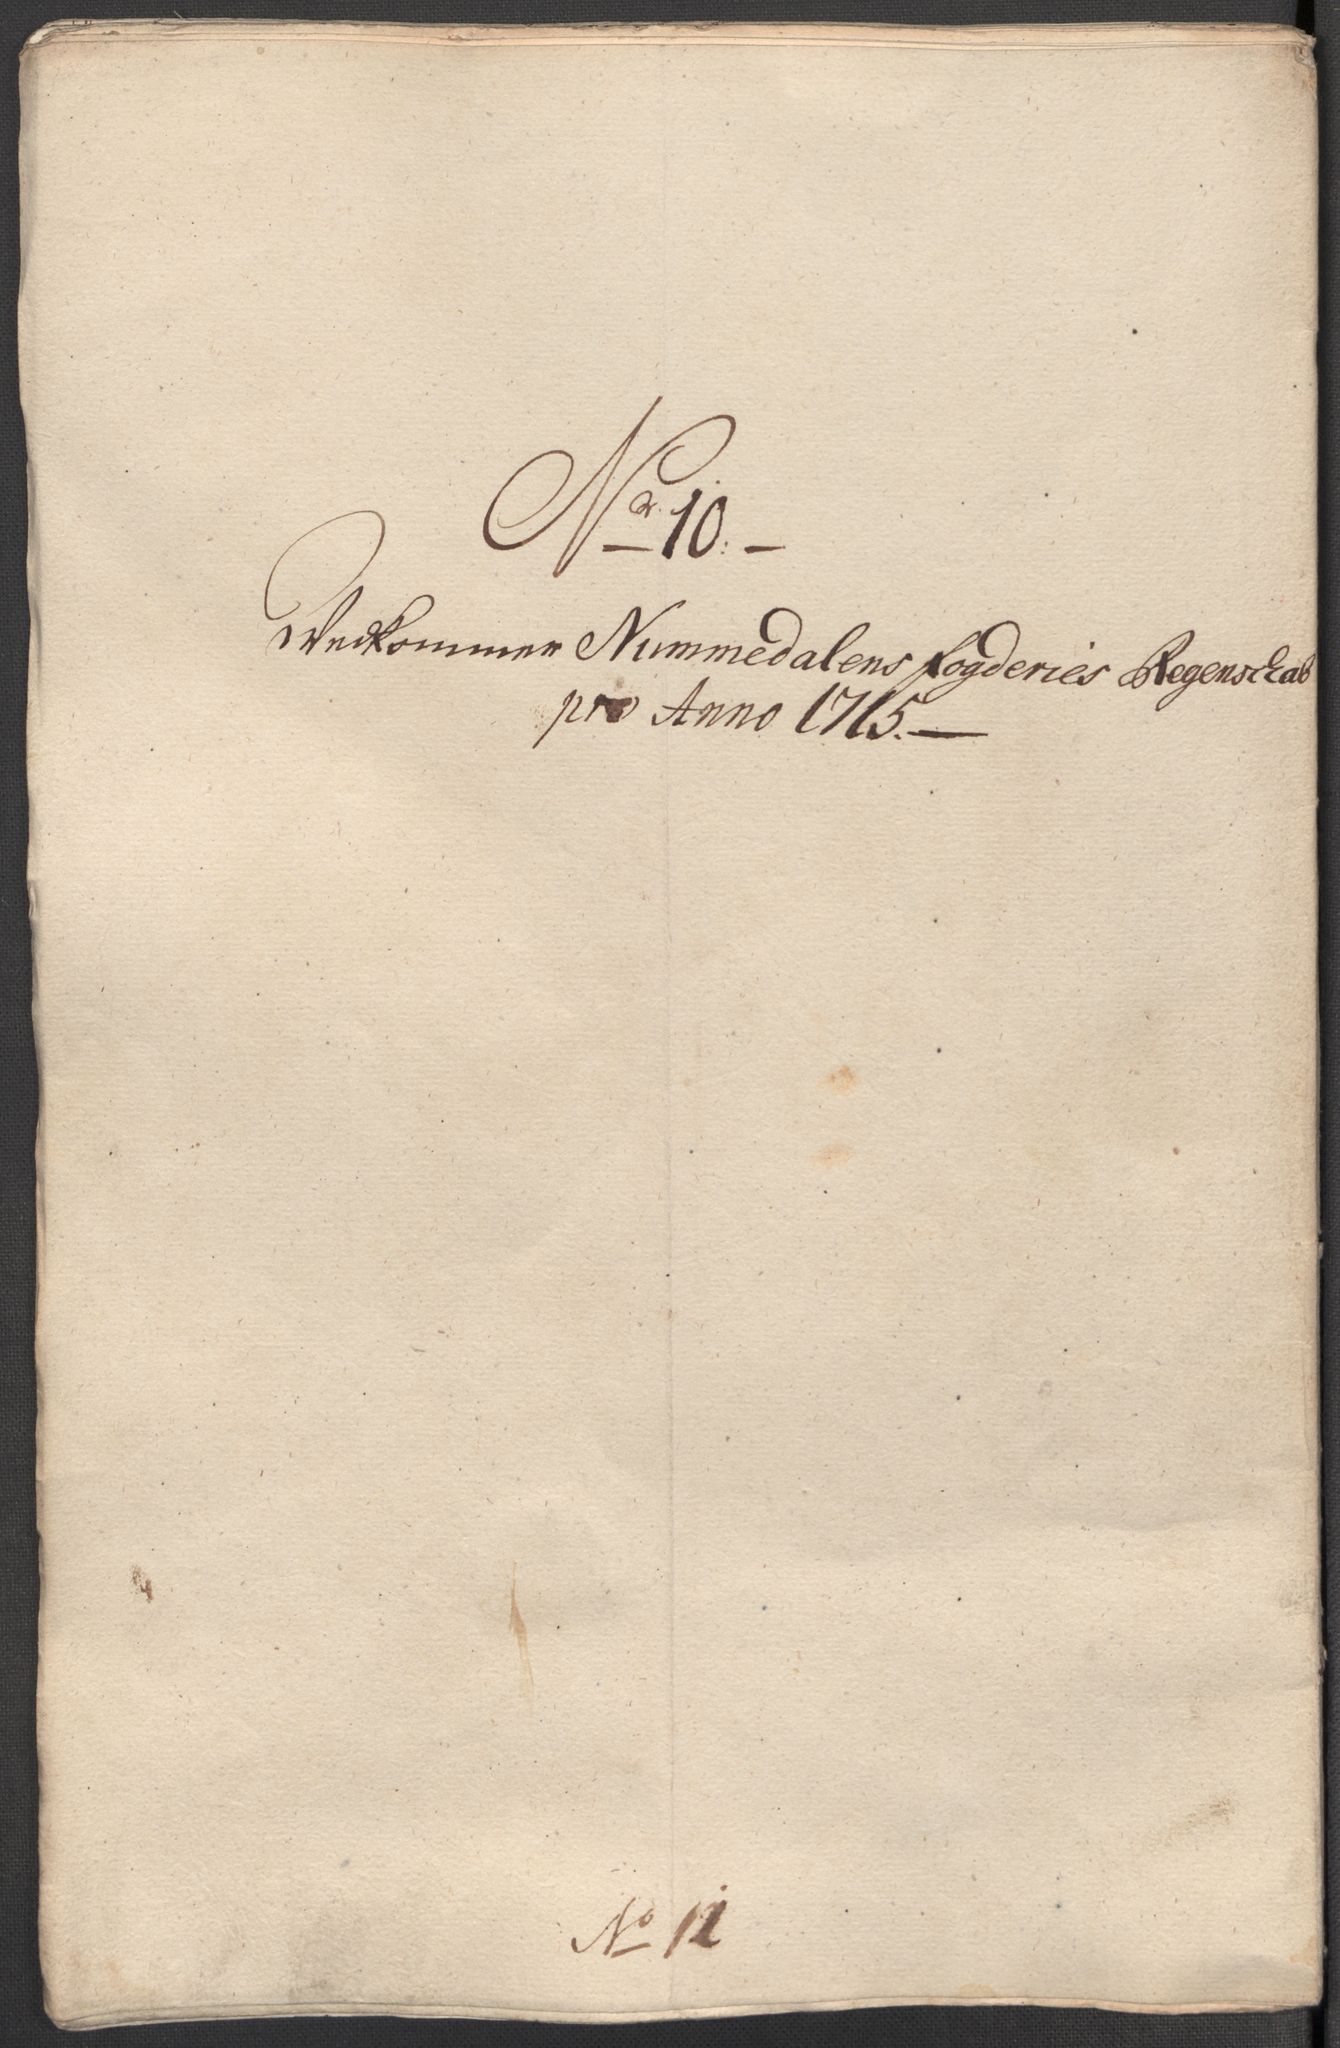 Nr. 10.
Vedkommer Nummedalens fogderies Regenskab
pro Anno 1715.
No